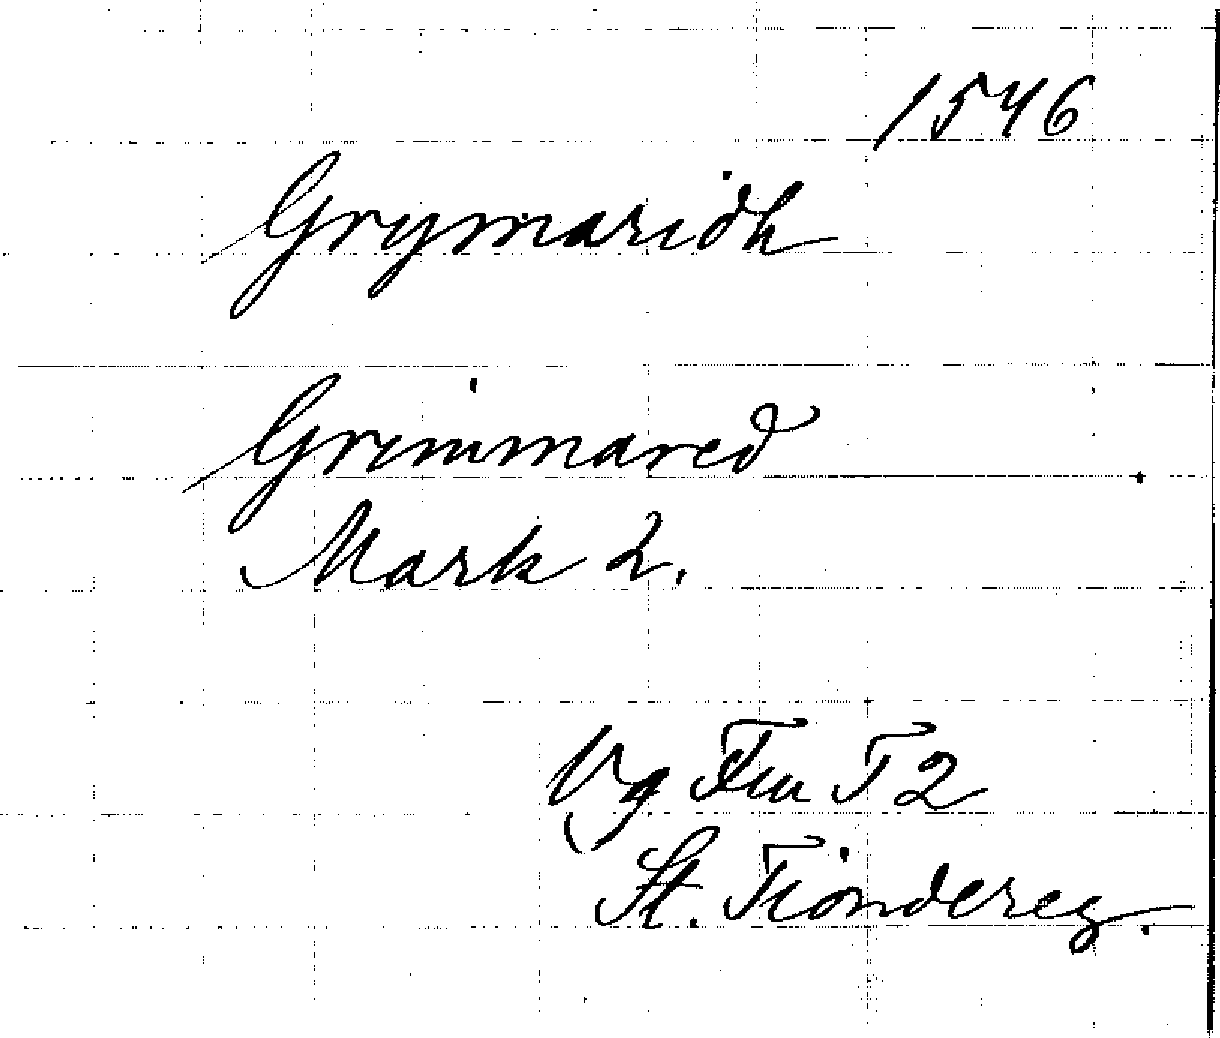 1546
Grymaridh
Grimmared
Mark 2.
Vg Fru T 2
St. Tiondereg.